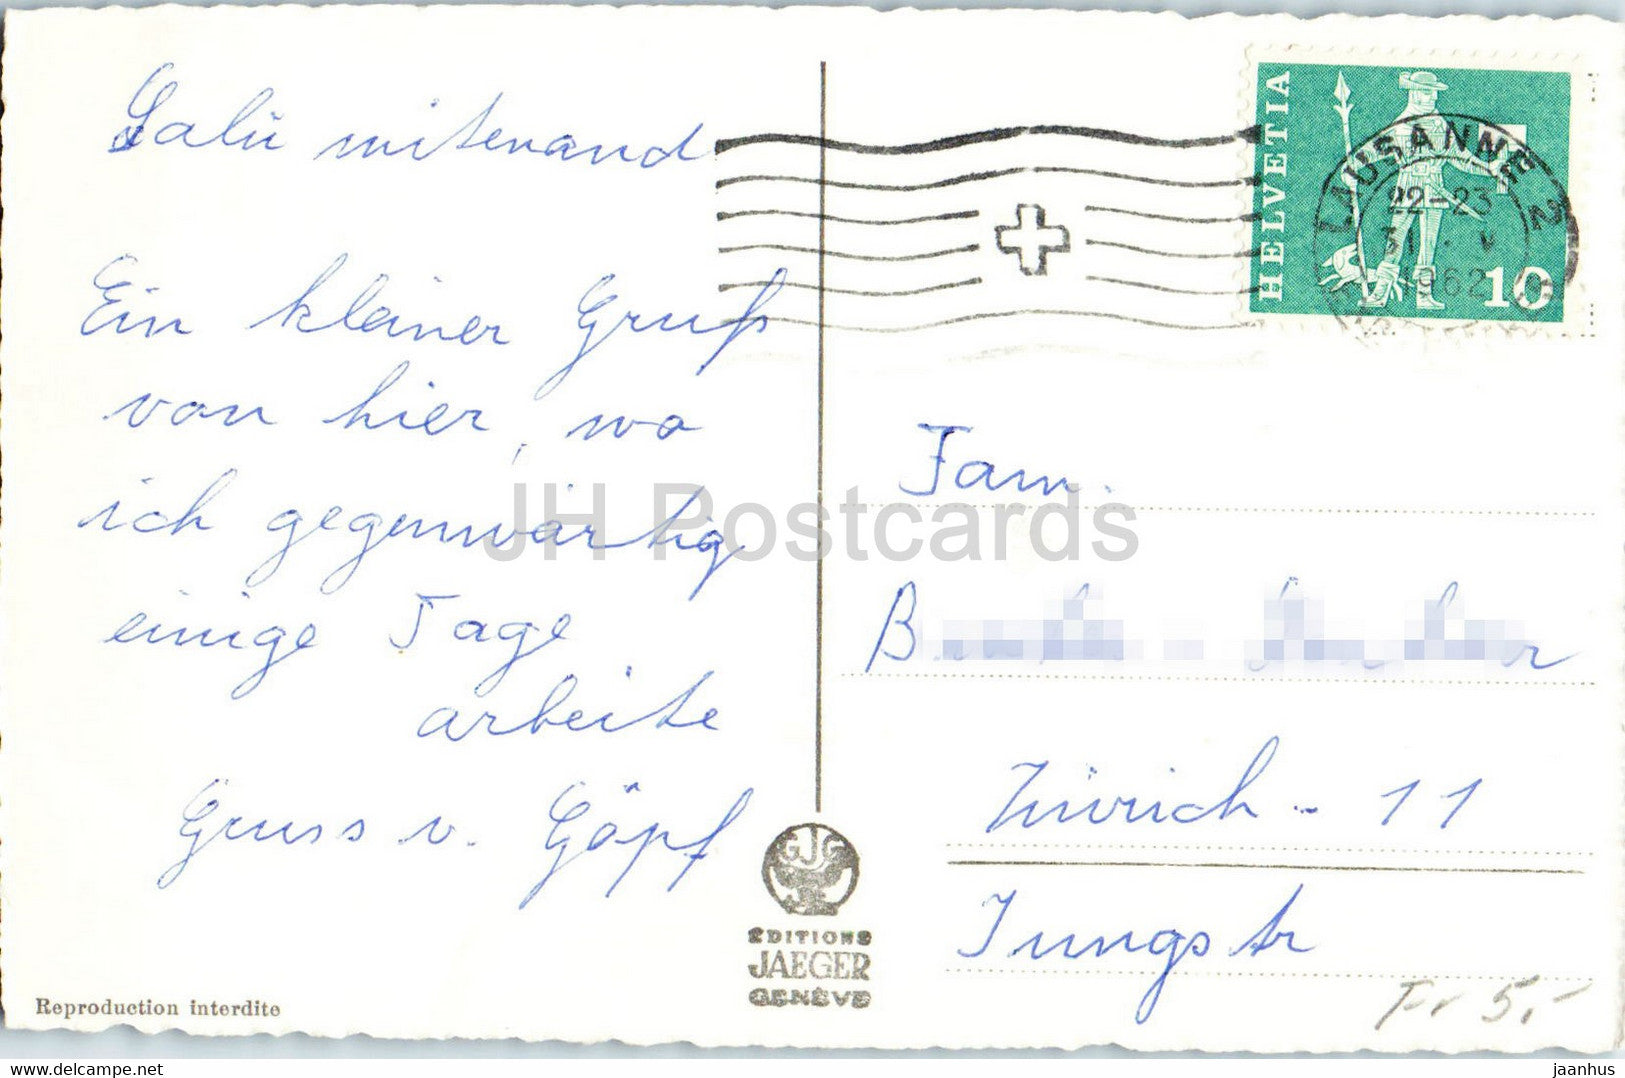 Salü mitenand
Ein kleiner Gruß
von hier, wo
ich gegenwärtig
einige Tage
arbeite
Gruss v. Göpf
Reproduction interdite
GJG
EDITIONS
JAEGER
GENÈVE
HELVETIA
10
LAUSANNE 2
22-23
31
1962
Fam.
Zürich - 11
Jungstr
Fr 5,-
JH Postcards
jaanhus
www.delcampe.net